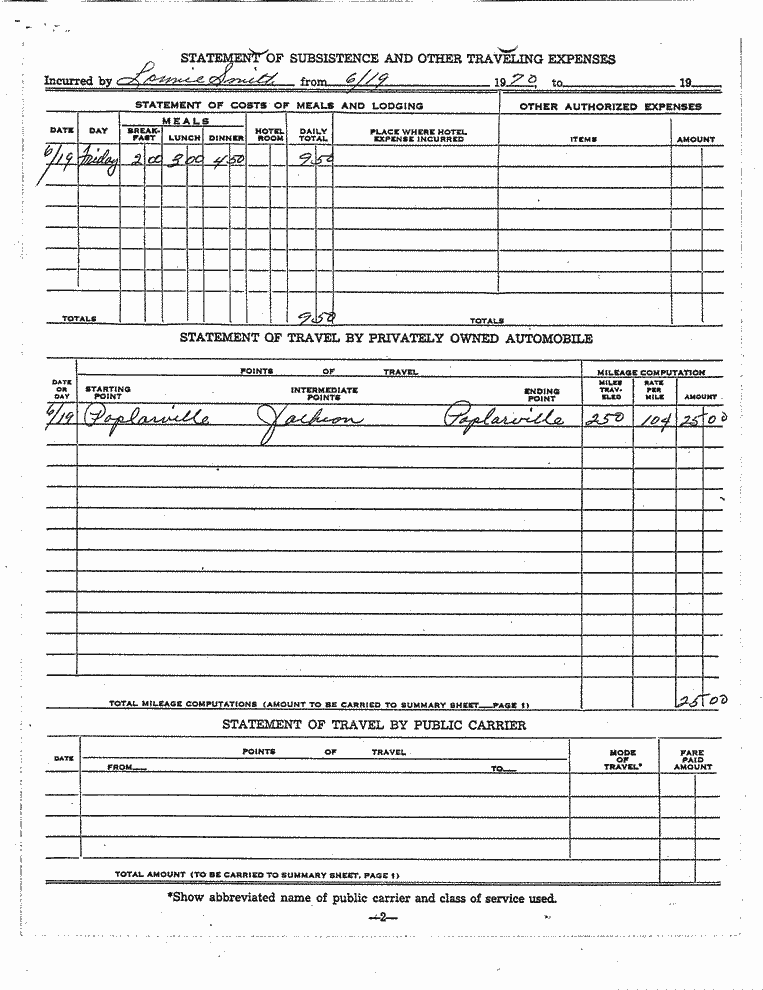 STATEMENT OF SUBSISTENCE AND OTHER TRAVELING EXPENSES
Incurred by Lonnie Smith from 6/19 1970, to 19
STATEMENT OF COSTS OF MEALS AND LODGING OTHER AUTHORIZED EXPENSES
DATE DAY MEALS BREAK-FAST LUNCH DINNER HOTEL ROOM DAILY TOTAL PLACE WHERE HOTEL EXPENSE INCURRED ITEMS AMOUNT
6/19 Friday 2 00 3 00 4 50 9 50
TOTALS 9 50 TOTALS
STATEMENT OF TRAVEL BY PRIVATELY OWNED AUTOMOBILE
POINTS OF TRAVEL MILEAGE COMPUTATION
DATE OR DAY STARTING POINT INTERMEDIATE POINTS ENDING POINT MILES TRAV-ELED RATE PER MILE AMOUNT
6/19 Poplarville Jackson Poplarville 250 10¢ 25 00
TOTAL MILEAGE COMPUTATIONS (AMOUNT TO BE CARRIED TO SUMMARY SHEET—PAGE 1) 25 00
STATEMENT OF TRAVEL BY PUBLIC CARRIER
DATE POINTS OF TRAVEL MODE OF TRAVEL* FARE PAID AMOUNT
FROM— TO—
TOTAL AMOUNT (TO BE CARRIED TO SUMMARY SHEET, PAGE 1)
*Show abbreviated name of public carrier and class of service used.
—2—